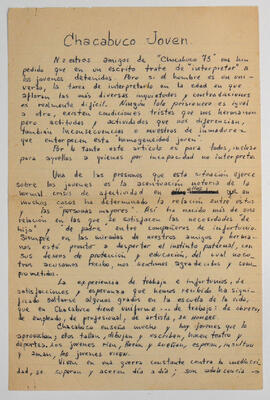 Chacabuco Joven.
Nuestros amigos de "Chacabuco 73" nos han
pedido que en un escrito trate de "interpretar" a
los jóvenes detenidos. Pero si el hombre es un uni-
verso, la tarea de interpretarlo en la edad en que
afloran las más diversas inquietudes y contradicciones
es realmente difícil. Ningún joven prisionero es igual
a otro, existen condiciones tristes que nos hermanan
pero actitudes y actividades que nos diferencian,
también inconsecuencias o muestras de inmadurez
que entorpecen esta homogeneidad joven.
Por lo tanto este artículo es para todos, incluso
para aquellos a quienes por incapacidad no interpreto.
Una de las presiones que esta situación ejerce
sobre los jóvenes es la acentuación notoria de la
normal crisis de afectividad en
muchos casos ha determinado la relación entre estos
y las personas mayores. Así han nacido más de una
relación en las que se satisfacen las necesidades de
hijo y de padre entre compañeros de infortunio.
Siempre en las miradas de nuestros amigos y herma-
nos está pronto a despertar el instinto paternal, con
sus deseos de protección y educación, del cual noso-
tros acusamos recibo, nos sentimos agradecidos y com-
prometidos.
La experiencia de trabajo e infortunios, de
satisfacciones y esperanza que hemos recibido ha signi-
ficado saltarse algunos grados en la escuela de la vida,
que en Chacabuco tiene uniforme... de trabajo: de obrero,
de empleado, de profesional, de artista, de HOMBRE.
Chacabuco enseña mucho y hay jóvenes que lo
aprovechan; ellos tallan, dibujan y escriben, hacen teatro y
deportes. Los jóvenes ríen, lloran y sueñan, esperan,
y aman, los jóvenes viven.
Viven en una guerra constante contra la mediocri-
dad, se superan y acercan día a día; son adolescencia